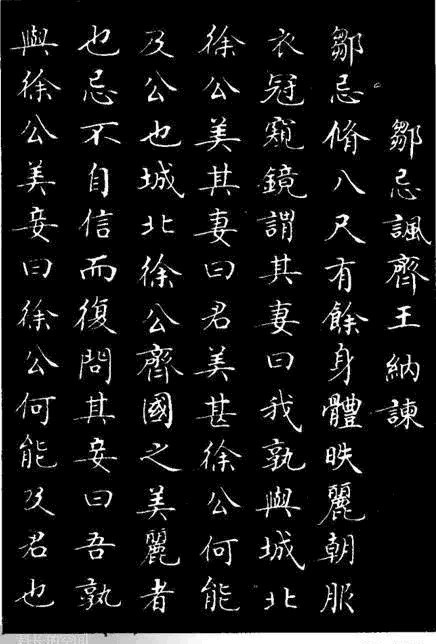 鄒忌諷齊王納諫
鄒忌脩八尺有餘身體昳麗朝服
衣冠窺鏡謂其妻曰我孰與城北
徐公美其妻曰君美甚徐公何能
及公也城北徐公齊國之美麗者
也忌不自信而復問其妾曰吾孰
與徐公美妾曰徐公何能及君也